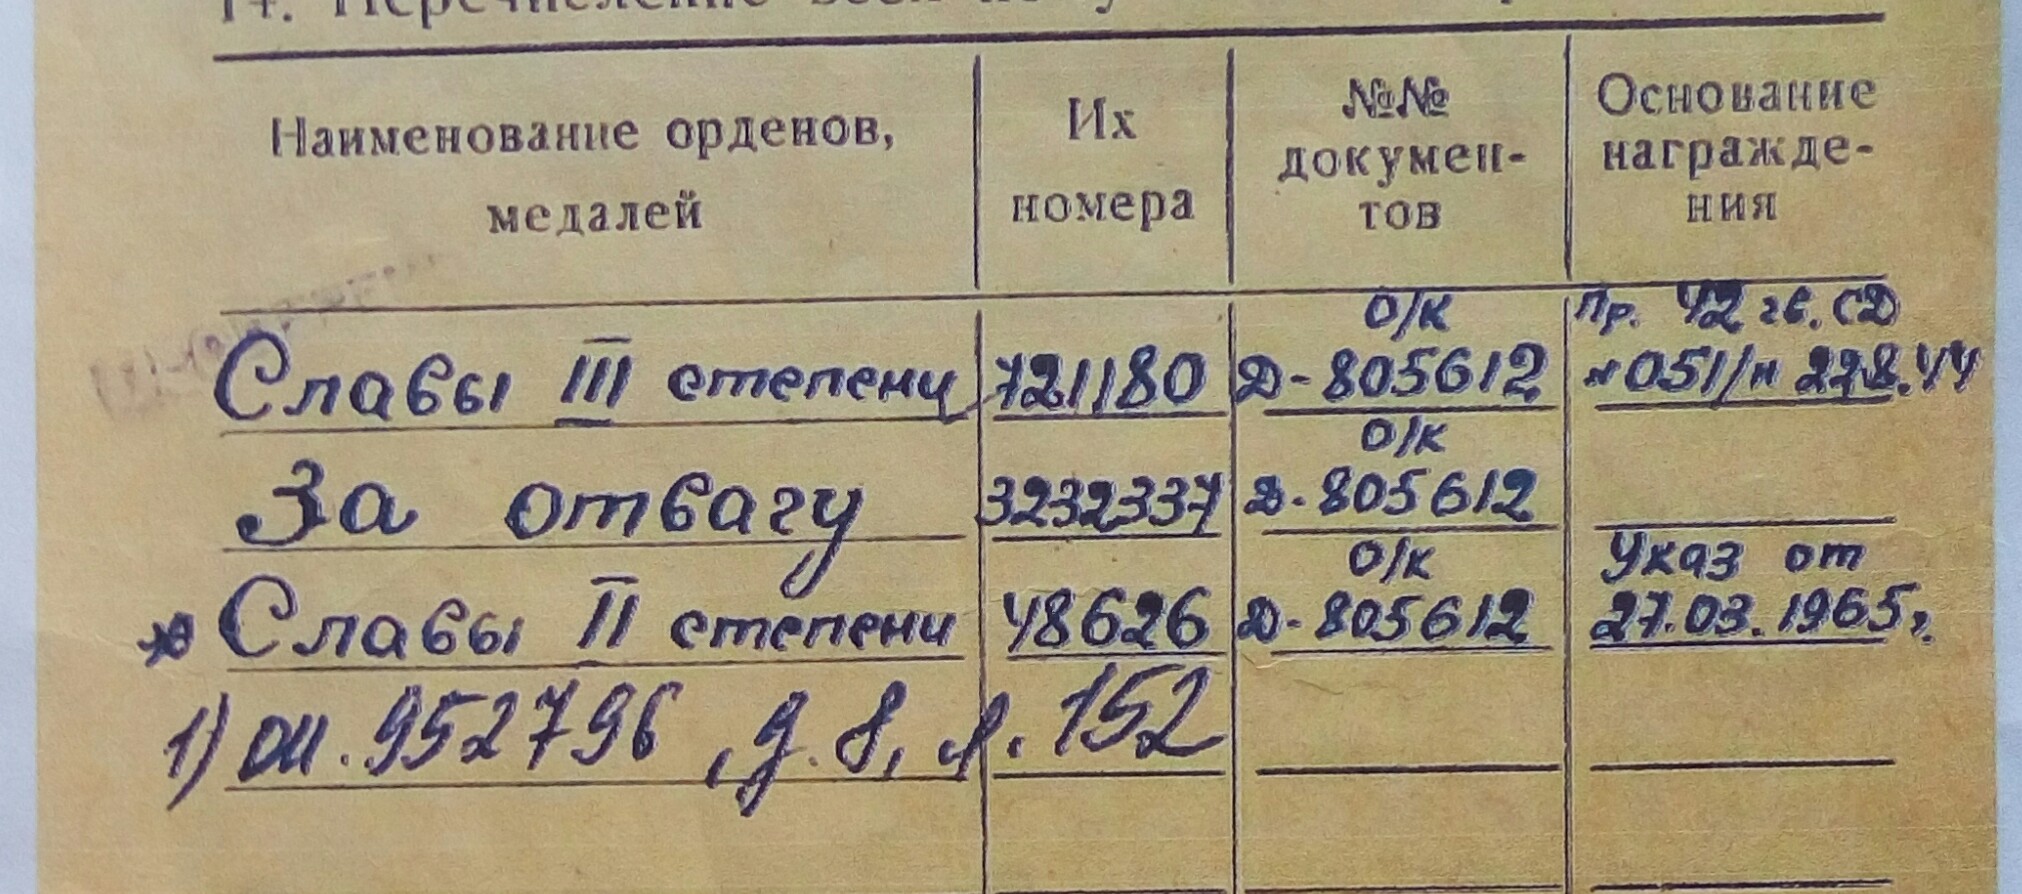 14. Перечисление всех
Наименование орденов, медалей
Их номера
№№ докумен-
тов
Основание
награжде-
ния
О/К Пр. 42 гв. СД
Славы III степени 721180 Д-805612 №051/н 22.8.44
О/К
За отвагу 3232337 Д-805612
О/К Указ от
Славы II степени 48626 Д-805612 27.03.1965г.
1) оп. 952796, д. 8, л. 152